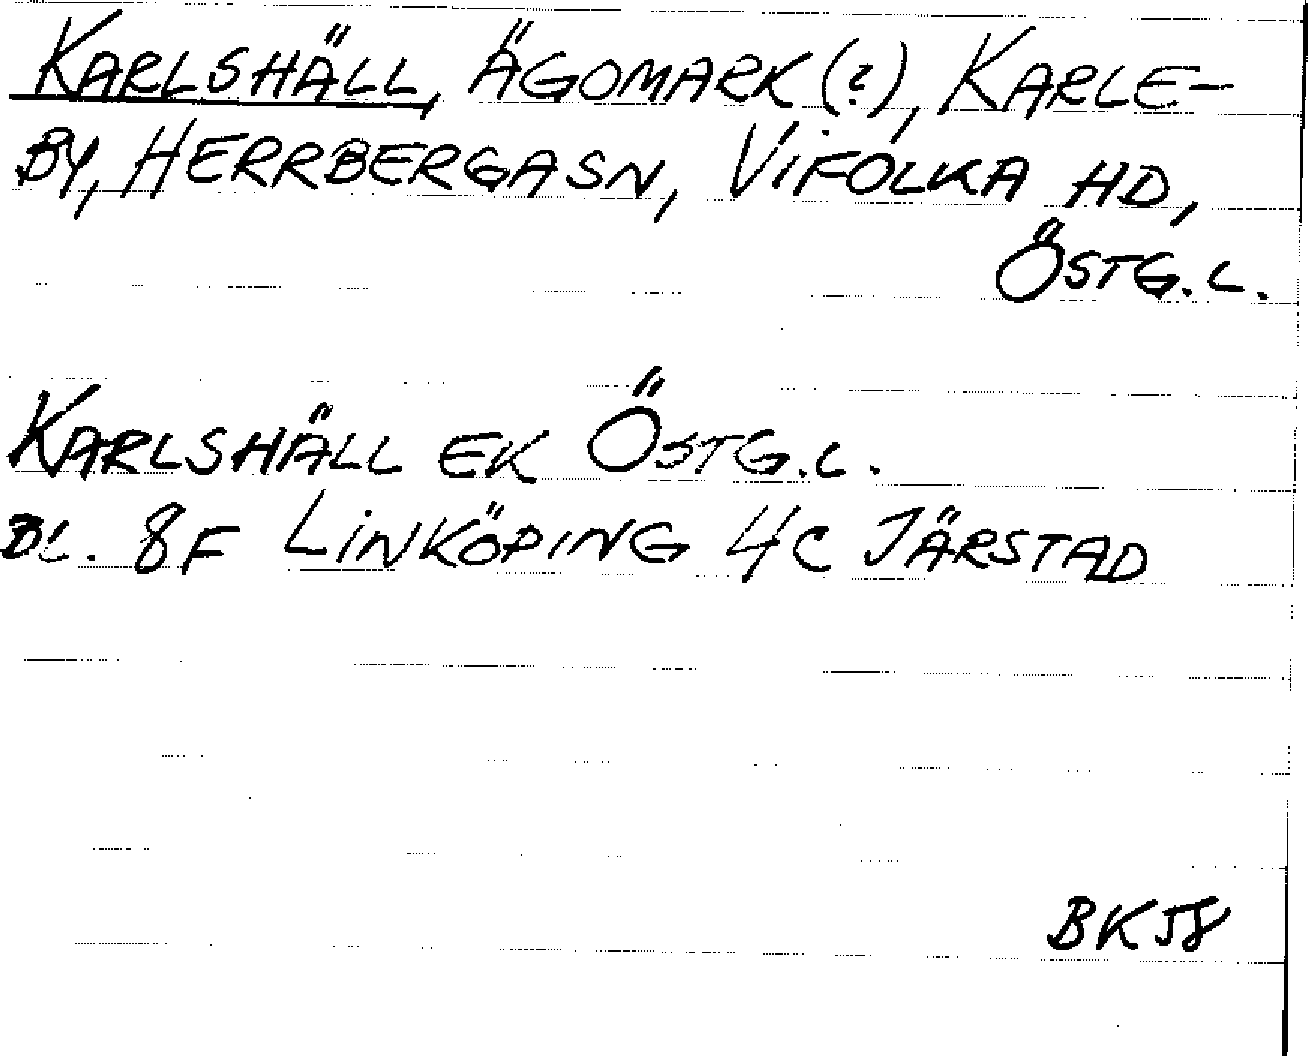 KARLSHÄLL, ÄGOMARK (?), KARLE-
BY, HERRBERGA SN, VIFOLKA HD,
ÖSTG.L.
KARLSHÄLL EK ÖSTG.L.
BL. 8F LINKÖPING 4C JÄRSTAD
BK58